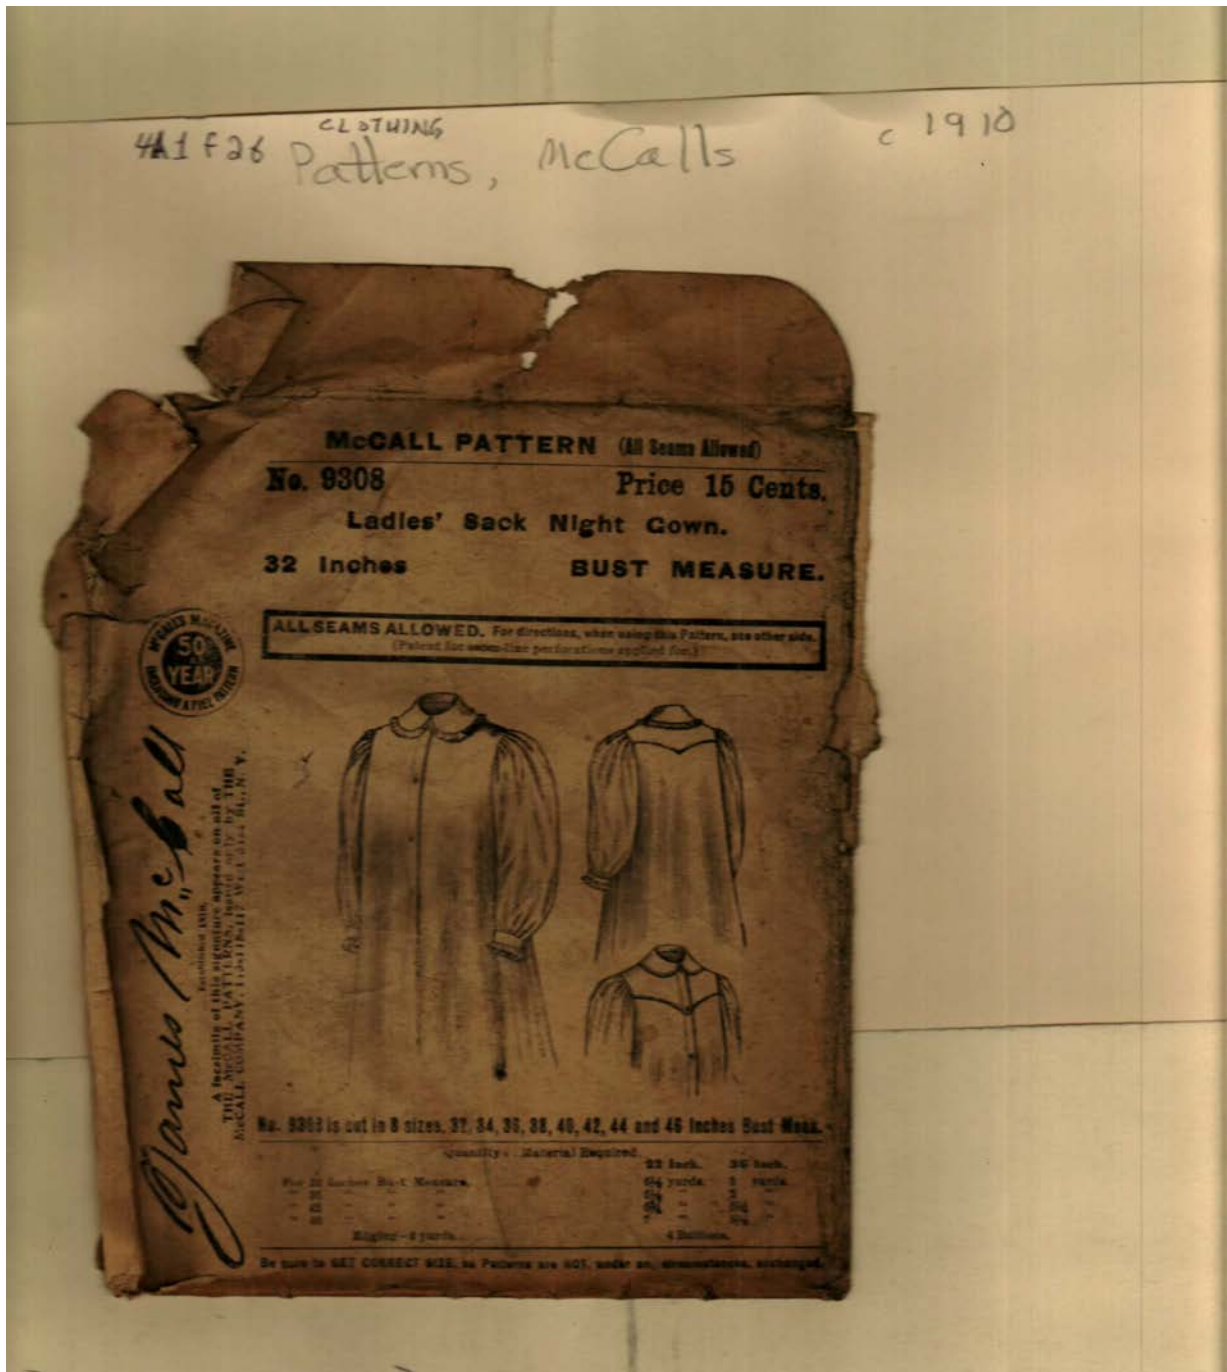 CLOTHING
4A1 F26 Patterns, McCalls c 1910
McCALL PATTERN (All Seams Allowed)
No. 9308 Price 15 Cents.
Ladies' Sack Night Gown.
32 Inches BUST MEASURE.
ALL SEAMS ALLOWED. For directions, when using this Pattern, see other side.
(Patent for seam-line perforations applied for.)
McCALL'S MAGAZINE
50c
YEAR
INCLUDING A FREE PATTERN
James McCall
Established 1870.
A facsimile of this signature appears on all of
THE McCALL PATTERNS, issued only by THE
McCALL COMPANY,
No. 9308 is cut in 8 sizes, 32, 34, 36, 38, 40, 42, 44 and 46 Inches Bust Meas.
Quantity Material Required
22 Inch. 36 Inch.
For 32 Inches Bust Measure, yards. 5 yards.
Edging—4 yards. 4 Buttons.
Be sure to GET CORRECT SIZE, as Patterns are NOT, under any circumstances, exchanged.